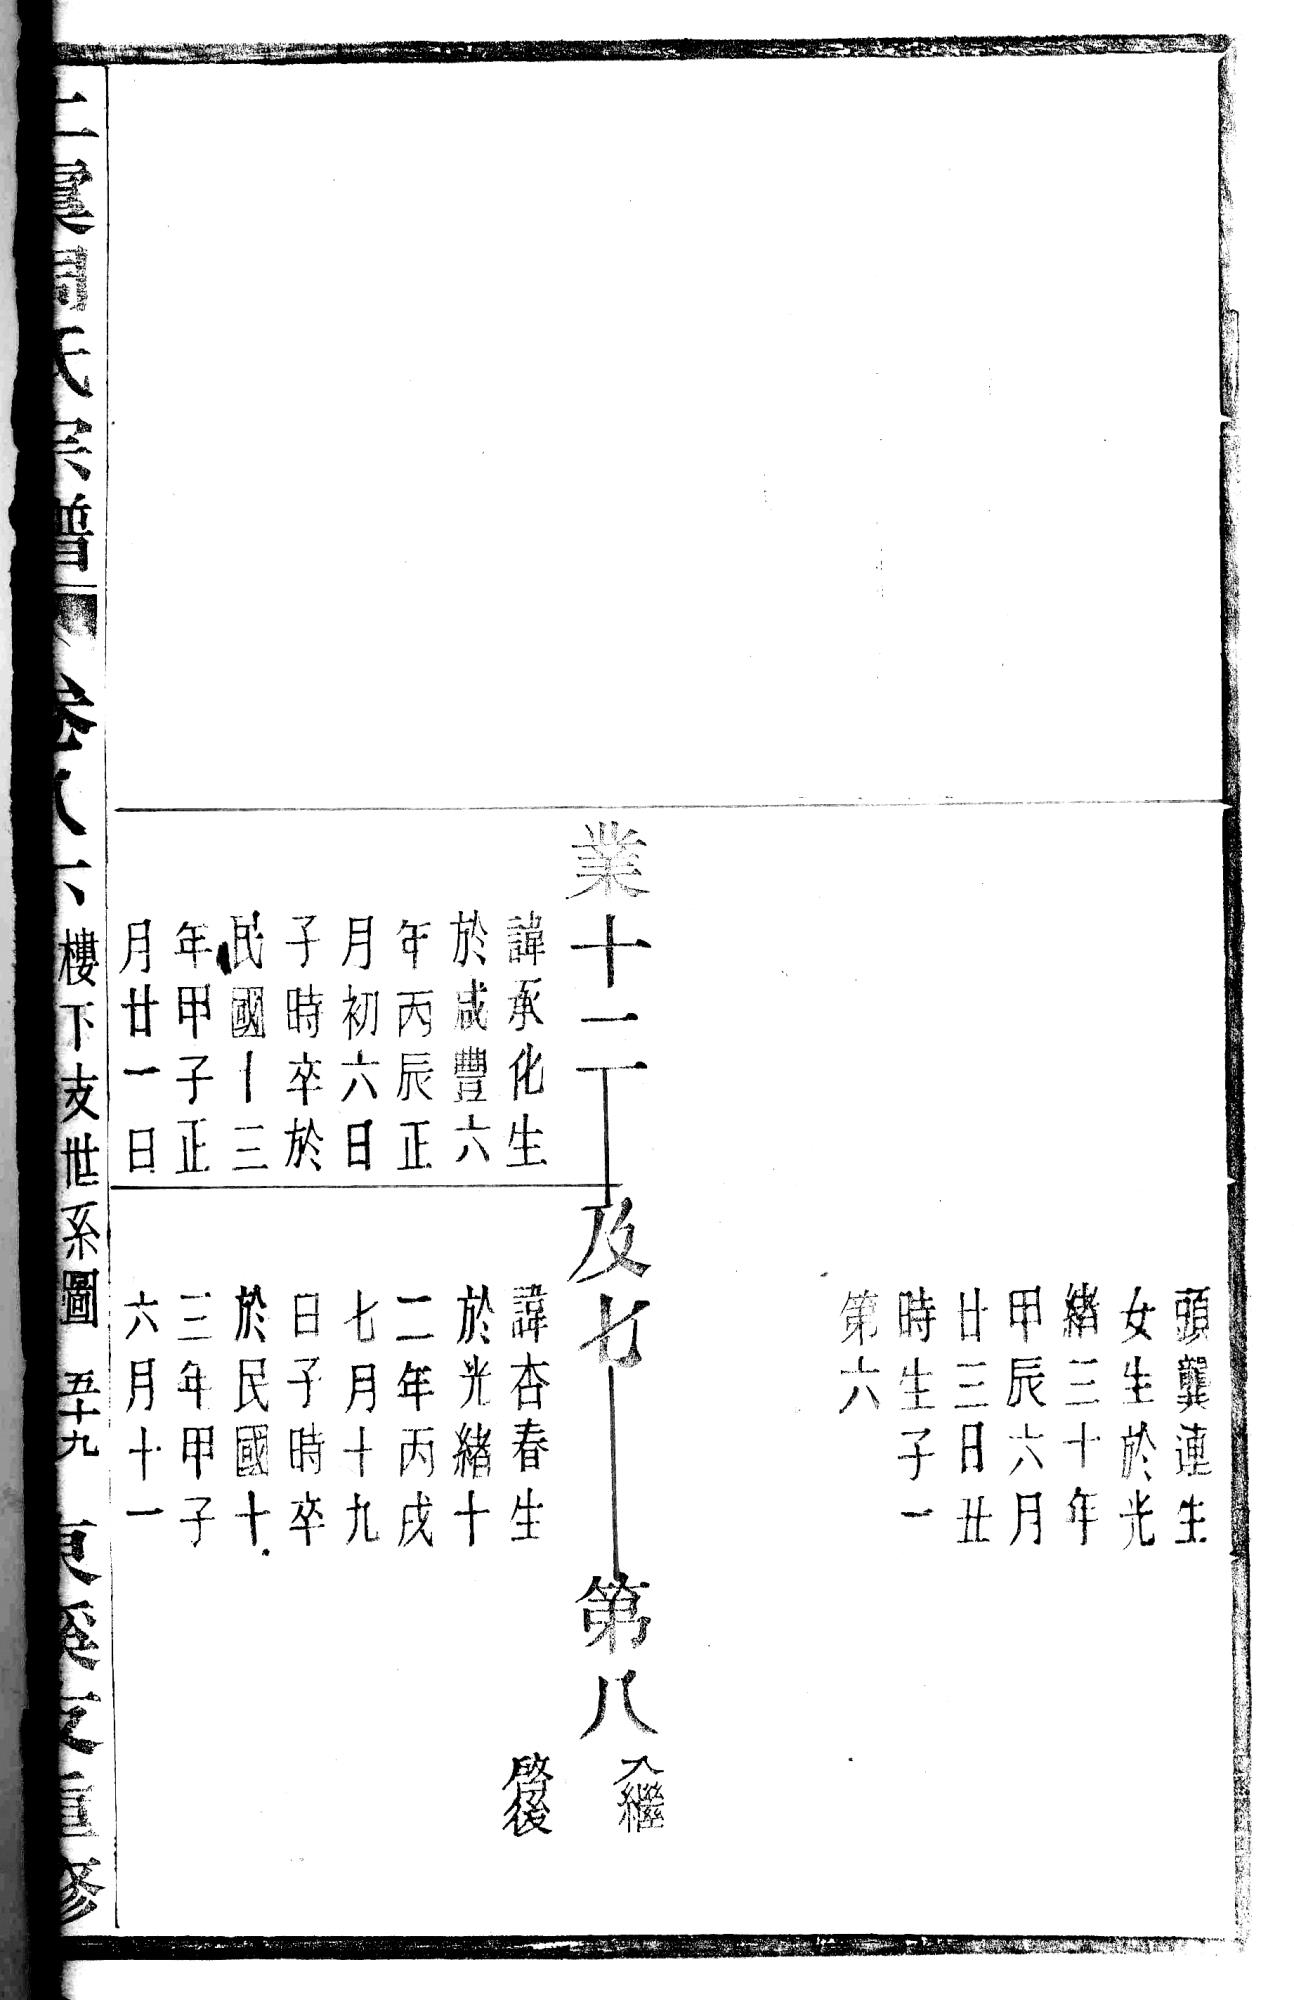 頭龔連生
女生於光
緒三十年
甲辰六月
廿三日丑
時生子一
第六
業十二
及七
第八
入繼
啓後
諱承化生
於咸豐六
年丙辰正
月初六日
子時卒於
民國十三
年甲子正
月廿一日
諱杏春生
於光緒十
二年丙戌
七月十九
日子時卒
於民國十
三年甲子
六月十一
上虞周氏宗譜
卷八六
樓下支世系圖
五十九
重修